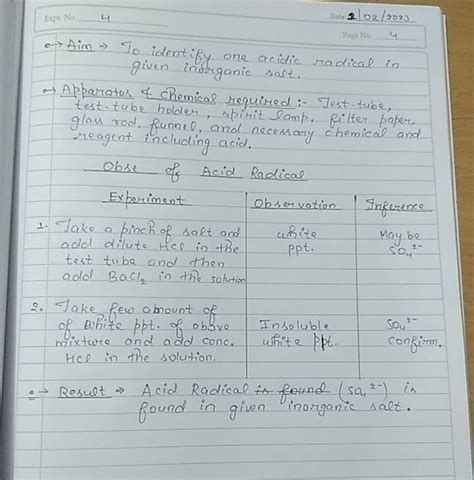 Expt. No. 4
Date 2/02/2023
Page No. 4
Aim → To identify one acidic radical in
given inorganic salt.
Apparatus & Chemical required :- Test-tube,
test-tube holder, spirit lamp, filter paper,
glass rod, funnel, and necessary chemical and
reagent including acid.
Obse of Acid Radical
Experiment Observation Inference
1. Take a pinch of salt and white May be
add dilute HCl in the ppt. SO4 2-
test tube and then
add BaCl2 in the solution
2. Take few amount of
of white ppt. of above Insoluble SO4 2-
mixture and add conc. white ppt. Confirm.
HCl in the solution.
Result → Acid Radical is found (SO4 2-) is
found in given inorganic salt.